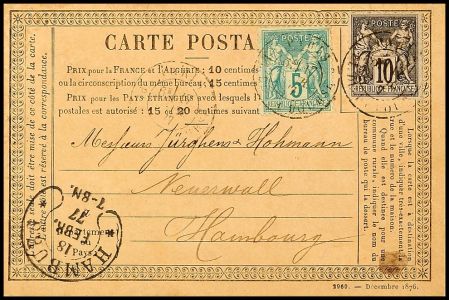 CARTE POSTA
PRIX pour la FRANCE et l'ALGÉRIE: 10 centimes
ou la circonscription du même bureau: 15 centimes
PRIX pour les PAYS ÉTRANGERS avec lesquels l
postales est autorisé: 15 ou 20 centimes
POSTE
5
POSTE
10
REPUBLIQUE FRANCE
Messieurs Jürghens & Hohmann
Neuerwall
Hambourg
Lorsque la carte est à destination
d'une ville, indiquer très-exactement
la rue et le numéro de la maison.
Quand elle est destinée à une
commune rurale, indiquer le nom du
bureau de poste qui la dessert.
doit être mise de ce côté de la carte.
est réservé à la correspondance.
HAMBURG
18
FEBR.
77
7-8N.
Pays
2960. — Décembre 1876.